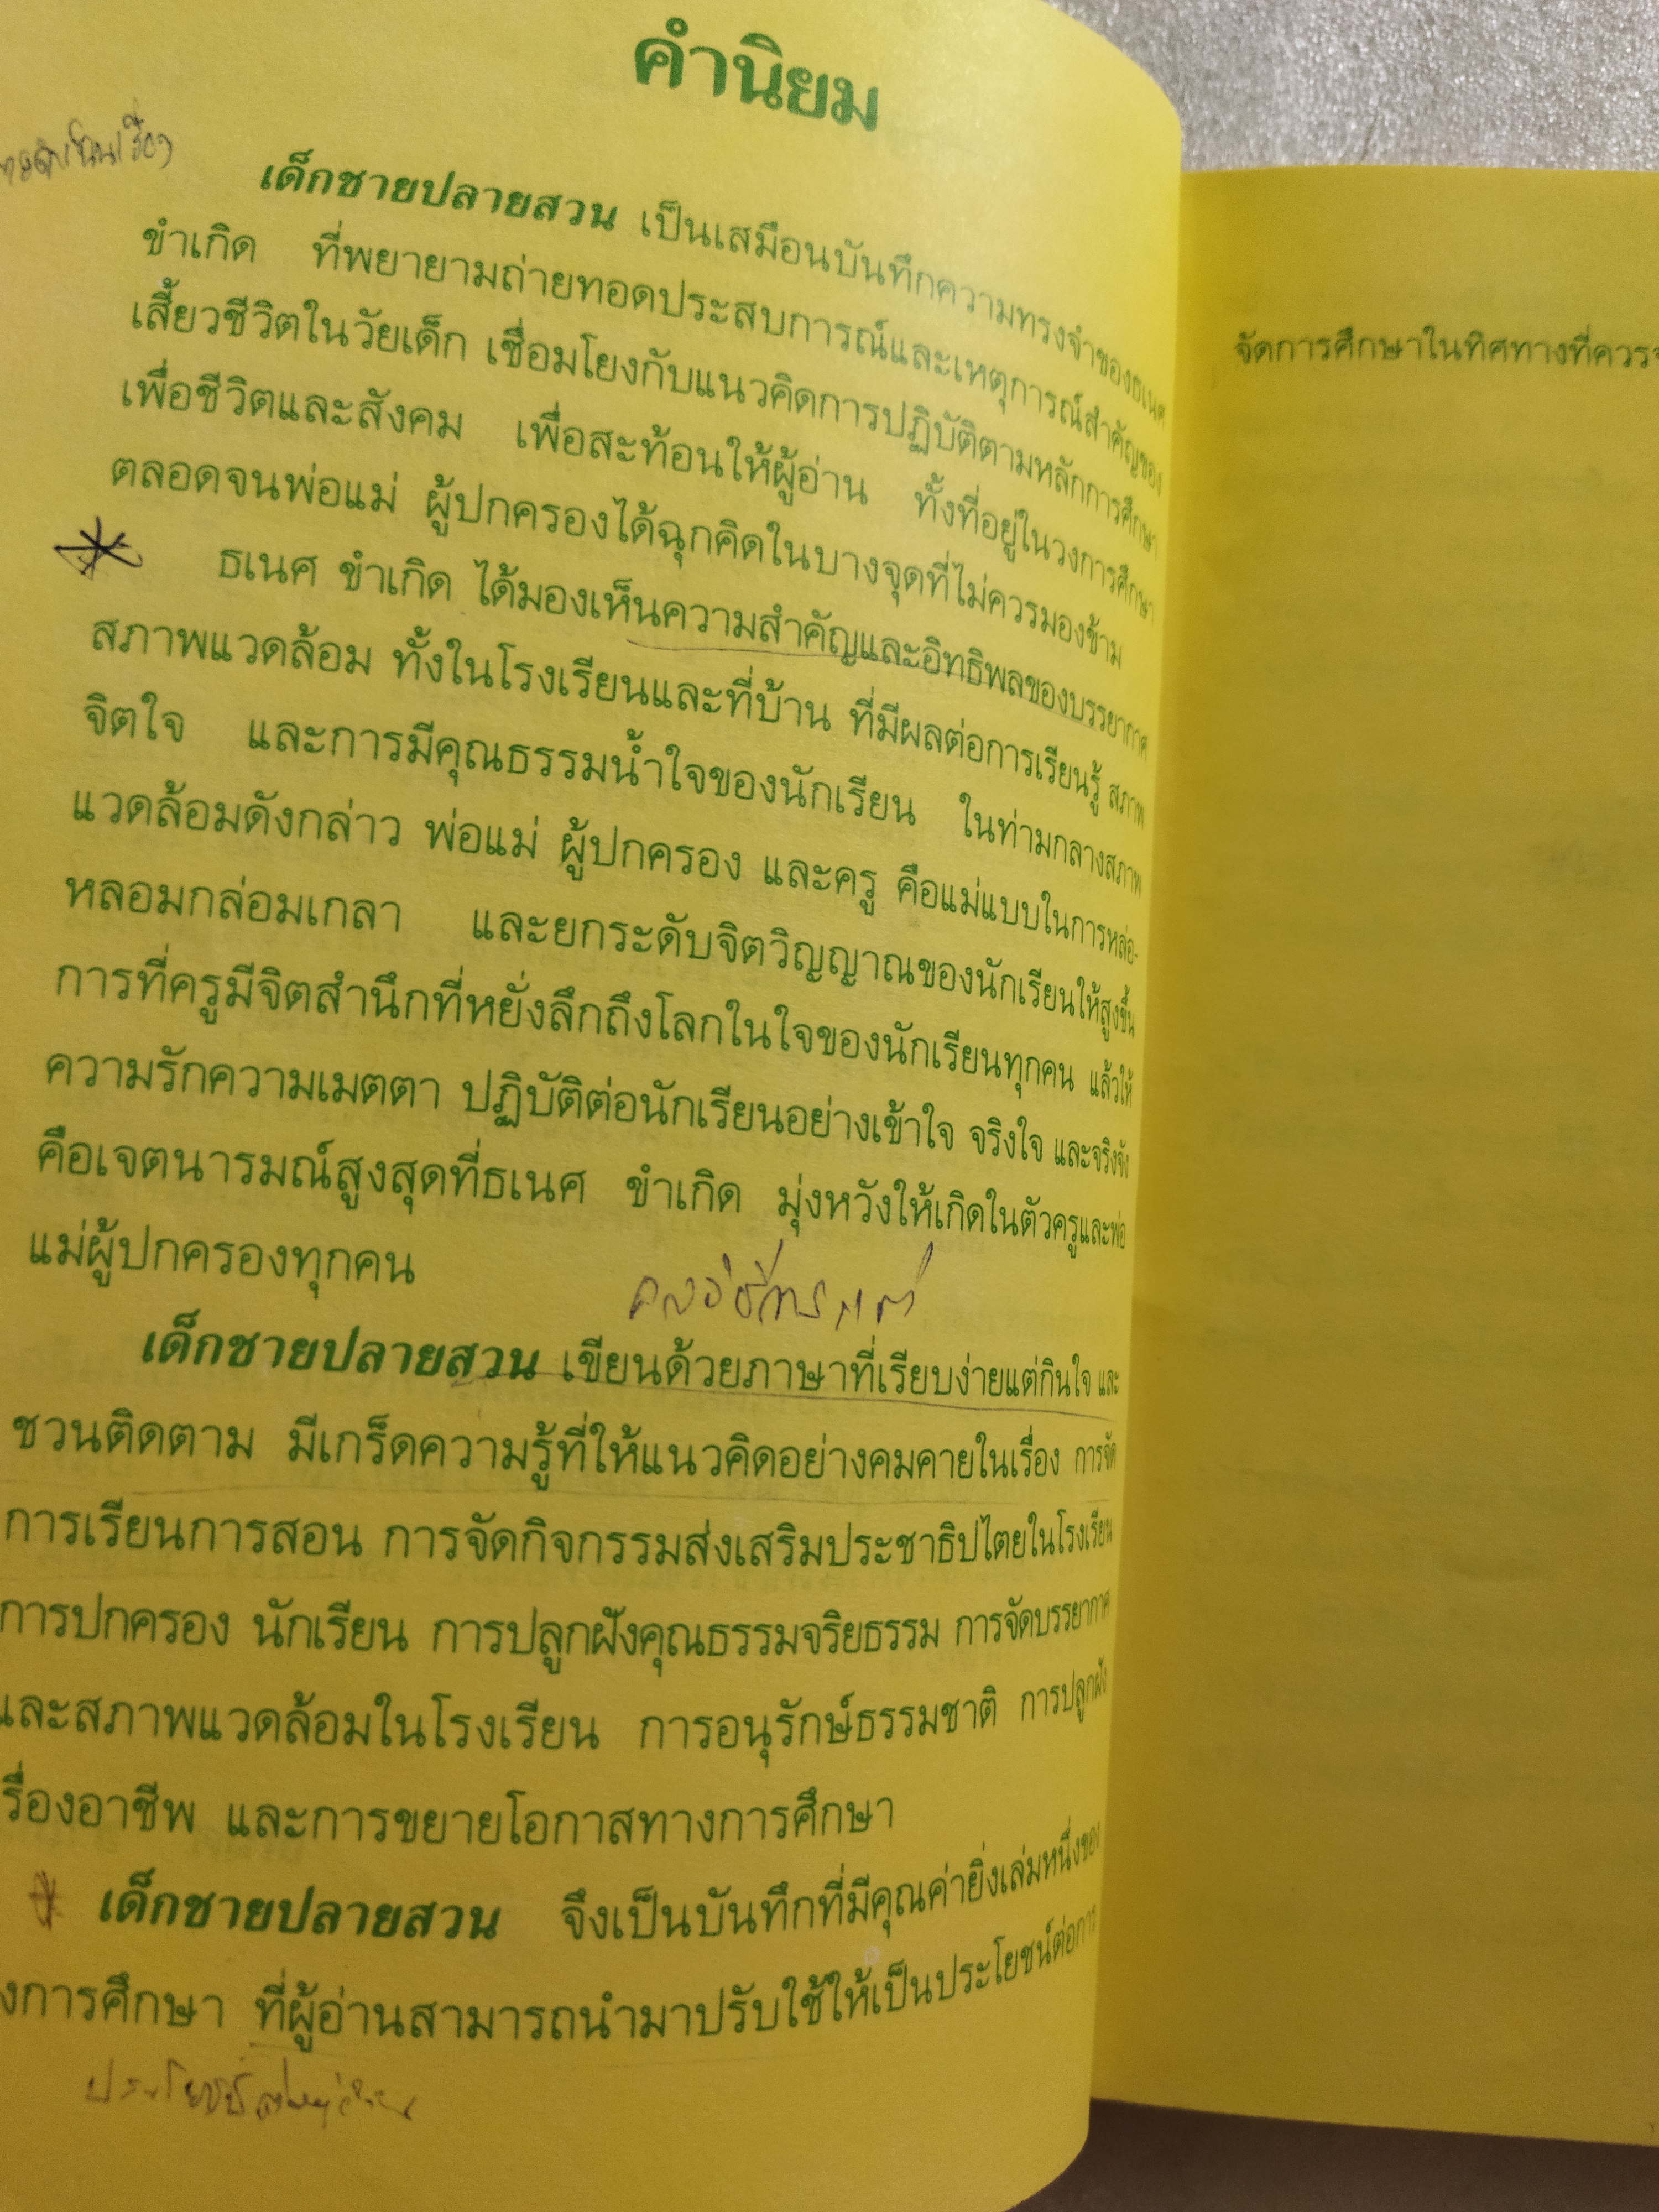 คำนิยม
เด็กชายปลายสวน เป็นเสมือนบันทึกความทรงจำของธเนศ
ขำเกิด ที่พยายามถ่ายทอดประสบการณ์และเหตุการณ์สำคัญของ
เสี้ยวชีวิตในวัยเด็ก เชื่อมโยงกับแนวคิดการปฏิบัติตามหลักการศึกษา
เพื่อชีวิตและสังคม เพื่อสะท้อนให้ผู้อ่าน ทั้งที่อยู่ในวงการศึกษา
ตลอดจนพ่อแม่ ผู้ปกครองได้ฉุกคิดในบางจุดที่ไม่ควรมองข้าม
ธเนศ ขำเกิด ได้มองเห็นความสำคัญและอิทธิพลของบรรยากาศ
สภาพแวดล้อม ทั้งในโรงเรียนและที่บ้าน ที่มีผลต่อการเรียนรู้ สภาพ
จิตใจ และการมีคุณธรรมน้ำใจของนักเรียน ในท่ามกลางสภาพ
แวดล้อมดังกล่าว พ่อแม่ ผู้ปกครอง และครู คือแม่แบบในการหล่อ-
หลอมกล่อมเกลา และยกระดับจิตวิญญาณของนักเรียนให้สูงขึ้น
การที่ครูมีจิตสำนึกที่หยั่งลึกถึงโลกในใจของนักเรียนทุกคน แล้วให้
ความรักความเมตตา ปฏิบัติต่อนักเรียนอย่างเข้าใจ จริงใจ และจริงจัง
คือเจตนารมณ์สูงสุดที่ธเนศ ขำเกิด มุ่งหวังให้เกิดในตัวครูและพ่อ
แม่ผู้ปกครองทุกคน
เด็กชายปลายสวน เขียนด้วยภาษาที่เรียบง่ายแต่กินใจ และ
ชวนติดตาม มีเกร็ดความรู้ที่ให้แนวคิดอย่างคมคายในเรื่อง การจัด
การเรียนการสอน การจัดกิจกรรมส่งเสริมประชาธิปไตยในโรงเรียน
การปกครอง นักเรียน การปลูกฝังคุณธรรมจริยธรรม การจัดบรรยากาศ
และสภาพแวดล้อมในโรงเรียน การอนุรักษ์ธรรมชาติ การปลูกฝัง
รื่องอาชีพ และการขยายโอกาสทางการศึกษา
เด็กชายปลายสวน จึงเป็นบันทึกที่มีคุณค่ายิ่งเล่มหนึ่งของ
งการศึกษา ที่ผู้อ่านสามารถนำมาปรับใช้ให้เป็นประโยชน์ต่อการ
จัดการศึกษาในทิศทางที่ควร